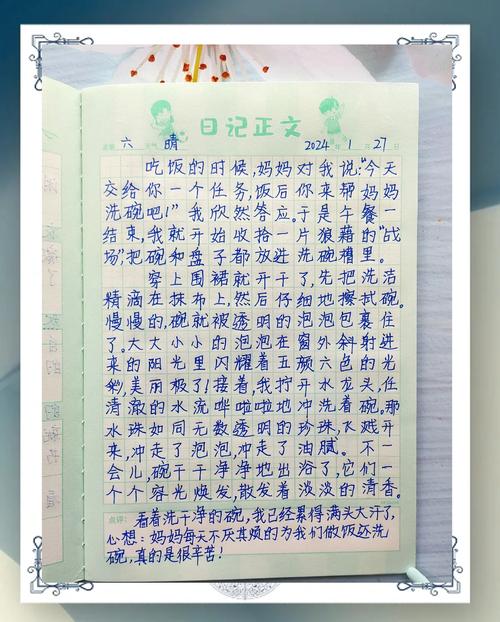 日记正文
星期 六 天气 晴 2024 年 1 月 27 日
吃饭的时候,妈妈对我说:"今天
交给你一个任务,饭后你来帮妈妈
洗碗吧!"我欣然答应。于是午餐一
结束,我就开始收拾一片狼藉的"战
场",把碗和盘子都放进洗碗槽里。
穿上围裙就开干了,先把洗洁
精滴在抹布上,然后仔细地擦拭碗。
慢慢的,碗就被透明的泡泡包裹住
了。大大小小的泡泡在窗外斜射进
来的阳光里闪耀着五颜六色的光
彩,美丽极了!接着,我拧开水龙头,任
清澈的水流哗啦啦地冲洗着碗。那
水珠如同无数透明的珍珠,飞溅开
来,冲走了泡泡,冲走了油腻。不一
会儿,碗干干净净地出浴了,它们一
个个容光焕发,散发着淡淡的清香。
点评: 看着洗干净的碗,我已经累得满头大汗了,
心想:妈妈每天不厌其烦的为我们做饭还洗
碗,真的是很辛苦!